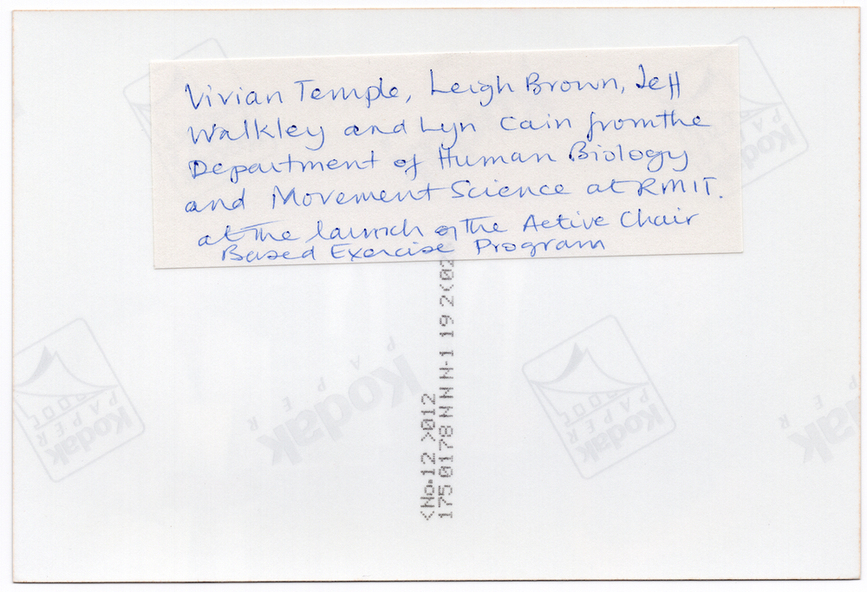 Vivian Temple, Leigh Brown, Jeff
Walkley and Lyn Cain from the
Department of Human Biology
and Movement Science at RMIT.
at the launch of the Active Chair
Based Exercise Program
<No.12 >012
175 0178 N N N N-1 19 2(02
Kodak
PAPER
Kodak
PAPER
Kodak
PAPER
Kodak
PAPER
Kodak